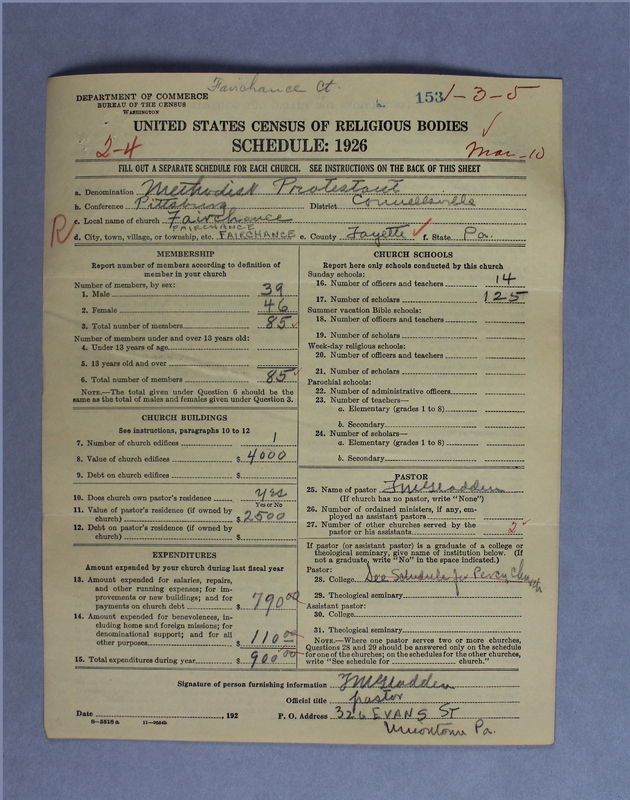 Fairchance Ct.
DEPARTMENT OF COMMERCE
BUREAU OF THE CENSUS
WASHINGTON
153 1-3-5
UNITED STATES CENSUS OF RELIGIOUS BODIES
SCHEDULE: 1926
2-4
Mar-10
FILL OUT A SEPARATE SCHEDULE FOR EACH CHURCH. SEE INSTRUCTIONS ON THE BACK OF THIS SHEET
a. Denomination Methodist Protestant
b. Conference Pittsburg District Connellsville
c. Local name of church Fairchance
FAIRCHANCE
R d. City, town, village, or township, etc. FAIRCHANCE e. County Fayette f. State Pa.
MEMBERSHIP
Report number of members according to definition of
member in your church
Number of members, by sex:
1. Male 39
2. Female 46
3. Total number of members 85
Number of members under and over 13 years old:
4. Under 13 years of age
5. 13 years old and over
6. Total number of members 85
NOTE.—The total given under Question 6 should be
the same as the total of males and females given under Question 3.
CHURCH BUILDINGS
See instructions, paragraphs 10 to 12
7. Number of church edifices 1
8. Value of church edifices $ 4000
9. Debt on church edifices $
10. Does church own pastor's residence yes
Yes or No
11. Value of pastor's residence (if owned by
church) $ 2500
12. Debt on pastor's residence (if owned by
church) $
EXPENDITURES
Amount expended by your church during last fiscal year
13. Amount expended for salaries, repairs,
and other running expenses; for im-
provements or new buildings; and for
payments on church debt $ 790.00
14. Amount expended for benevolences, in-
cluding home and foreign missions; for
denominational support; and for all
other purposes $ 110.00
15. Total expenditures during year $ 900.00
CHURCH SCHOOLS
Report here only schools conducted by this church
Sunday schools:
16. Number of officers and teachers 14
17. Number of scholars 125
Summer vacation Bible schools:
18. Number of officers and teachers
19. Number of scholars
Week-day religious schools:
20. Number of officers and teachers
21. Number of scholars
Parochial schools:
22. Number of administrative officers
23. Number of teachers—
a. Elementary (grades 1 to 8)
b. Secondary
24. Number of scholars—
a. Elementary (grades 1 to 8)
b. Secondary
PASTOR
25. Name of pastor
(If church has no pastor, write "None")
26. Number of ordained ministers, if any, em-
ployed as assistant pastors
27. Number of other churches served by the
pastor or his assistants 2
If pastor (or assistant pastor) is a graduate of a college or
theological seminary, give name of institution below. (If
not a graduate, write "No" in the space indicated.)
Pastor:
28. College See Schedule for Percy Church
29. Theological seminary
Assistant pastor:
30. College
31. Theological seminary
NOTE.—Where one pastor serves two or more churches,
Questions 28 and 29 should be answered only on the schedule
for one of the churches; on the schedules for the other churches,
write "See schedule for church."
Signature of person furnishing information
Official title pastor
Date , 192 P. O. Address 326 EVANS ST
8-5518a 11-9554b
Uniontown Pa.